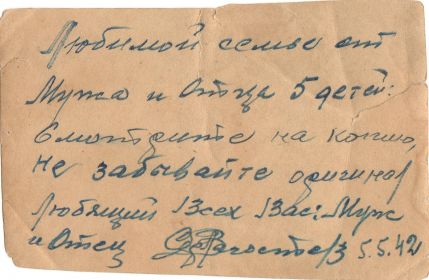 Любимой семье от
Мужа и Отца 5 детей:
Смотрите на копию,
не забывайте оригинал
Любящий Всех Вас: Муж
и Отец 5.5.42